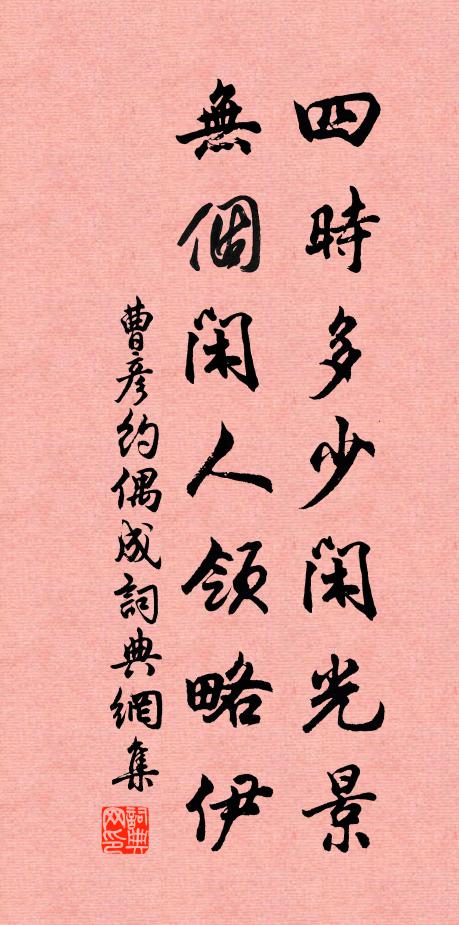 四時多少閑光景
無個閑人領略伊
曹彥約偶成詞典網集
詞典网印